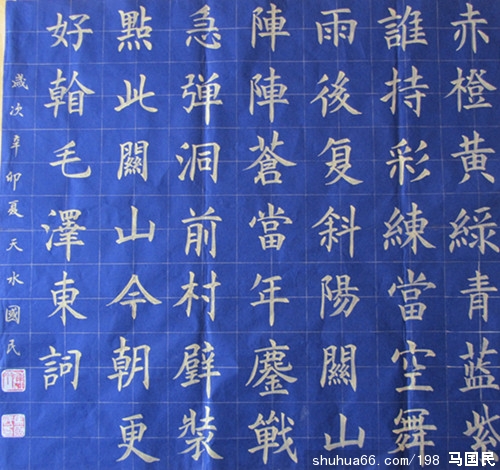 赤橙黄綠青蓝紫
誰持彩練當空舞
雨後复斜陽關山
陣陣蒼當年鏖戰
急弹洞前村壁裝
點此關山今朝更
好毛澤東詞
歲次辛卯夏天水國民
shuhua66.com/198 马国民